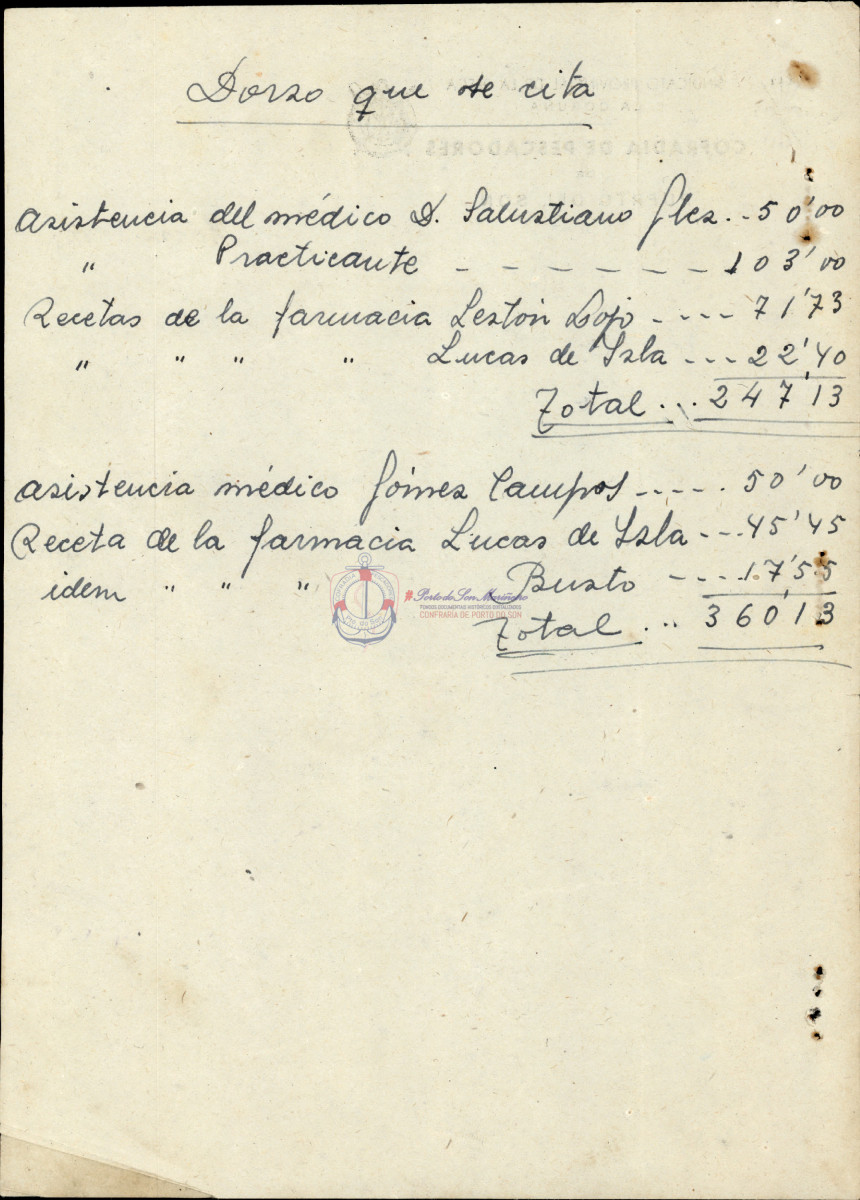 Dorso que se cita
Asistencia del médico D. Salustiano Glez. -- 50'00
" Practicante - - - - - - - 103'00
Recetas de la farmacia Lestón Lojo - - - - 71'73
" " " " Lucas de Isla - - - 22'40
Total ... 247'13
Asistencia médico Gómez Campos - - - - . 50'00
Receta de la farmacia Lucas de Isla - - - 45'45
idem " " " Busto - - - - 17'55
Total ... 360'13
#Porto do Son Mariñeiro
FONDOS DOCUMENTAIS HISTÓRICOS DIXITALIZADOS
CONFRARIA DE PORTO DO SON